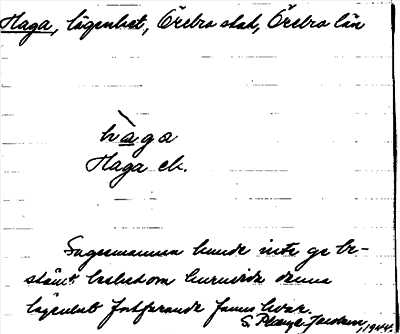 Haga, lägenhet, Örebro stad, Örebro län
hàga
Haga ek.
Sagesmannen kunde inte ge be-
stämt besked om huruvida denna
lägenhet fortfarande fanns kvar.
S. 1944.